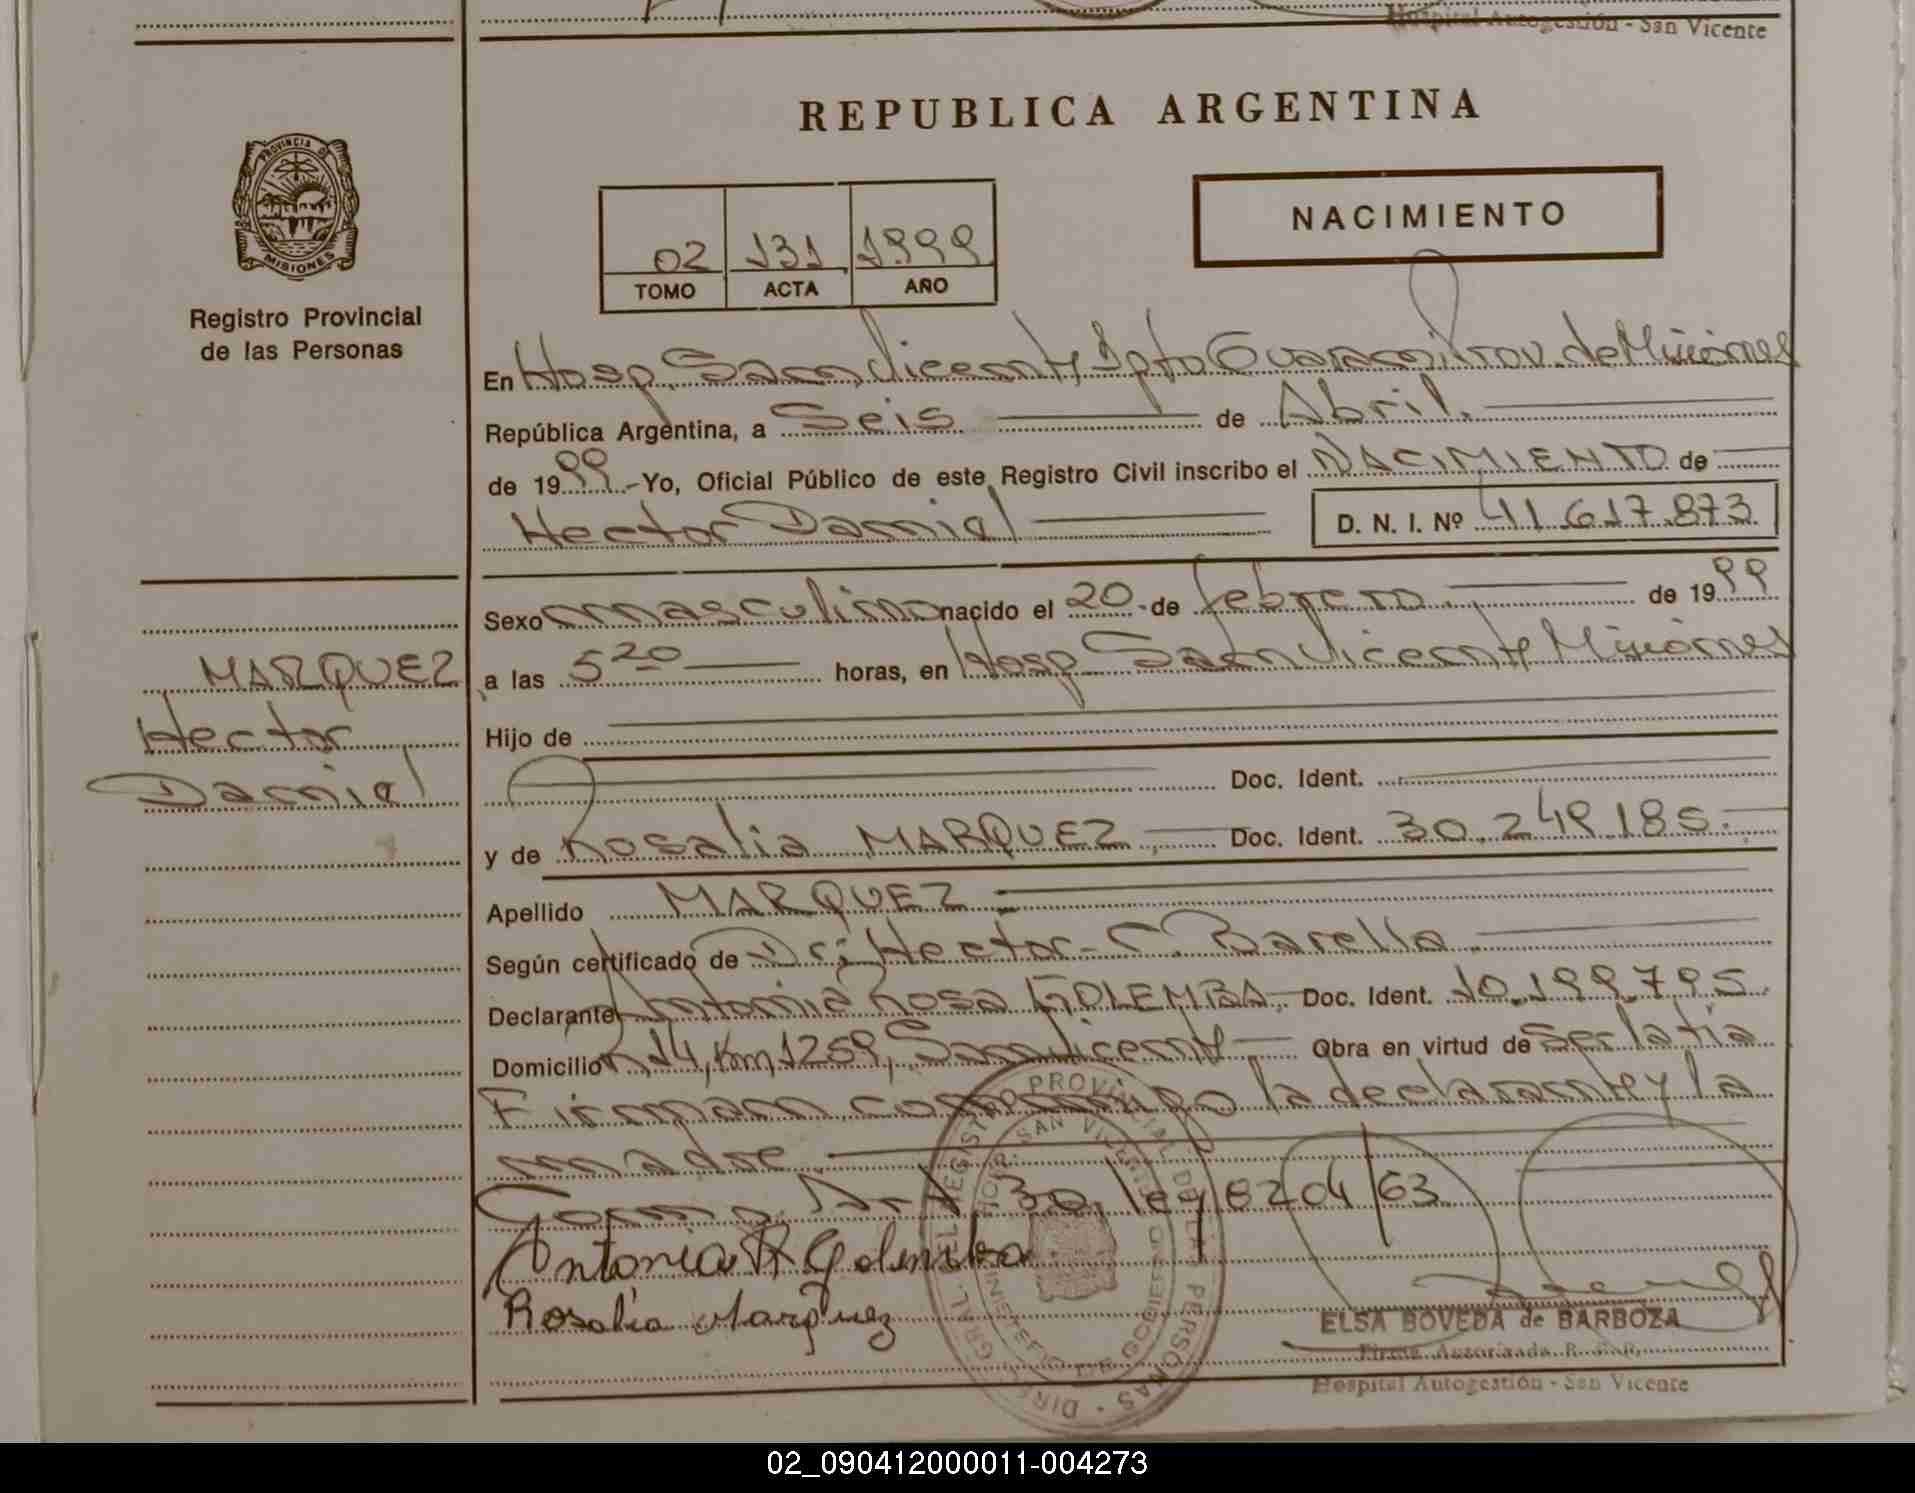 Hospital Autogestión - San Vicente
REPUBLICA ARGENTINA
PROVINCIA DE
MISIONES
Registro Provincial
de las Personas
02 131 1999
TOMO ACTA AÑO
NACIMIENTO
En Hosp. San Vicente Dpto Guarani Prov. de Misiones
República Argentina, a Seis de Abril.
de 1999.- Yo, Oficial Público de este Registro Civil inscribo el NACIMIENTO de
Hector Daniel D. N. I. Nº 41.617.873
Sexo masculino nacido el 20 de febrero de 1999
MARQUEZ
Hector
Daniel
a las 5 20 horas, en Hosp San Vicente Misiones
Hijo de
Doc. Ident.
y de Rosalia MARQUEZ Doc. Ident. 30.249.185.-
Apellido MARQUEZ
Según certificado de Dr: Hector C. Barella
Declarante Antonia Rosa GOLEMBA, Doc. Ident. 10.199.795.
Domicilio R 14, Km, 1259, San Vicente Obra en virtud de ser la tia
Firman conmigo la declarante y la
madre
Art 30, ley 8204/63
Antonia R Golemba
Rosalia Marquez
ELSA BOVEDA de BARBOZA
Firma Autorizada R. P. P.
Hospital Autogestión - San Vicente
DIREC. GRAL. DEL REGISTRO PROVINCIAL DE LAS PERSONAS
SAN VICENTE
MINISTERIO DE GOBIERNO
02_090412000011-004273